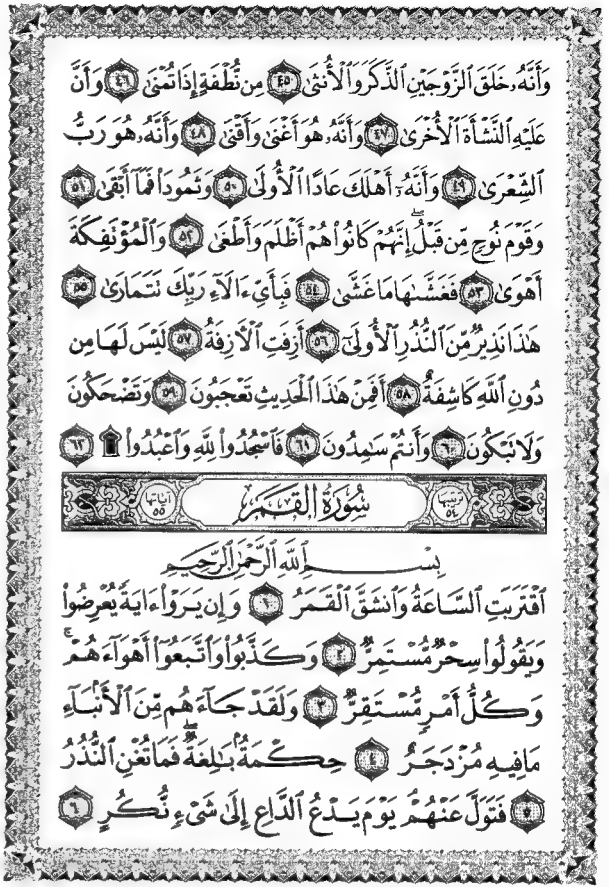 وَأَنَّهُۥ خَلَقَ ٱلزَّوْجَيْنِ ٱلذَّكَرَ وَٱلْأُنثَىٰ ٤٥ مِن نُّطْفَةٍ إِذَا تُمْنَىٰ ٤٦ وَأَنَّ
عَلَيْهِ ٱلنَّشْأَةَ ٱلْأُخْرَىٰ ٤٧ وَأَنَّهُۥ هُوَ أَغْنَىٰ وَأَقْنَىٰ ٤٨ وَأَنَّهُۥ هُوَ رَبُّ
ٱلشِّعْرَىٰ ٤٩ وَأَنَّهُۥٓ أَهْلَكَ عَادًا ٱلْأُولَىٰ ٥٠ وَثَمُودَا۟ فَمَآ أَبْقَىٰ ٥١
وَقَوْمَ نُوحٍ مِّن قَبْلُ ۖ إِنَّهُمْ كَانُوا۟ هُمْ أَظْلَمَ وَأَطْغَىٰ ٥٢ وَٱلْمُؤْتَفِكَةَ
أَهْوَىٰ ٥٣ فَغَشَّىٰهَا مَا غَشَّىٰ ٥٤ فَبِأَىِّ ءَالَآءِ رَبِّكَ تَتَمَارَىٰ ٥٥
هَـٰذَا نَذِيرٌ مِّنَ ٱلنُّذُرِ ٱلْأُولَىٰٓ ٥٦ أَزِفَتِ ٱلْـَٔازِفَةُ ٥٧ لَيْسَ لَهَا مِن
دُونِ ٱللَّهِ كَاشِفَةٌ ٥٨ أَفَمِنْ هَـٰذَا ٱلْحَدِيثِ تَعْجَبُونَ ٥٩ وَتَضْحَكُونَ
وَلَا تَبْكُونَ ٦٠ وَأَنتُمْ سَـٰمِدُونَ ٦١ فَٱسْجُدُوا۟ لِلَّهِ وَٱعْبُدُوا۟ ۩ ٦٢
ترتيبها ٥٤ سُورَةُ القَمَر آياتها ٥٥
بِسْمِ ٱللَّهِ ٱلرَّحْمَـٰنِ ٱلرَّحِيمِ
ٱقْتَرَبَتِ ٱلسَّاعَةُ وَٱنشَقَّ ٱلْقَمَرُ ١ وَإِن يَرَوْا۟ ءَايَةً يُعْرِضُوا۟
وَيَقُولُوا۟ سِحْرٌ مُّسْتَمِرٌّ ٢ وَكَذَّبُوا۟ وَٱتَّبَعُوٓا۟ أَهْوَآءَهُمْ ۚ
وَكُلُّ أَمْرٍ مُّسْتَقِرٌّ ٣ وَلَقَدْ جَآءَهُم مِّنَ ٱلْأَنۢبَآءِ
مَا فِيهِ مُزْدَجَرٌ ٤ حِكْمَةٌۢ بَـٰلِغَةٌ ۖ فَمَا تُغْنِ ٱلنُّذُرُ
٥ فَتَوَلَّ عَنْهُمْ ۘ يَوْمَ يَدْعُ ٱلدَّاعِ إِلَىٰ شَىْءٍ نُّكُرٍ ٦